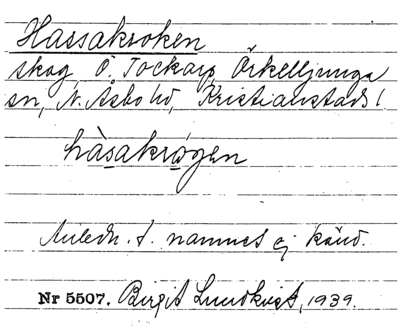 Hassakroken
skog, Ö. Tockarp, Örkelljunga
sn, N. Åsbo hd, Kristianstads l
hàsakrøgen
Anledn. t. namnet ej känd.
Nr 5507. Birgit Lundkvist, 1939.